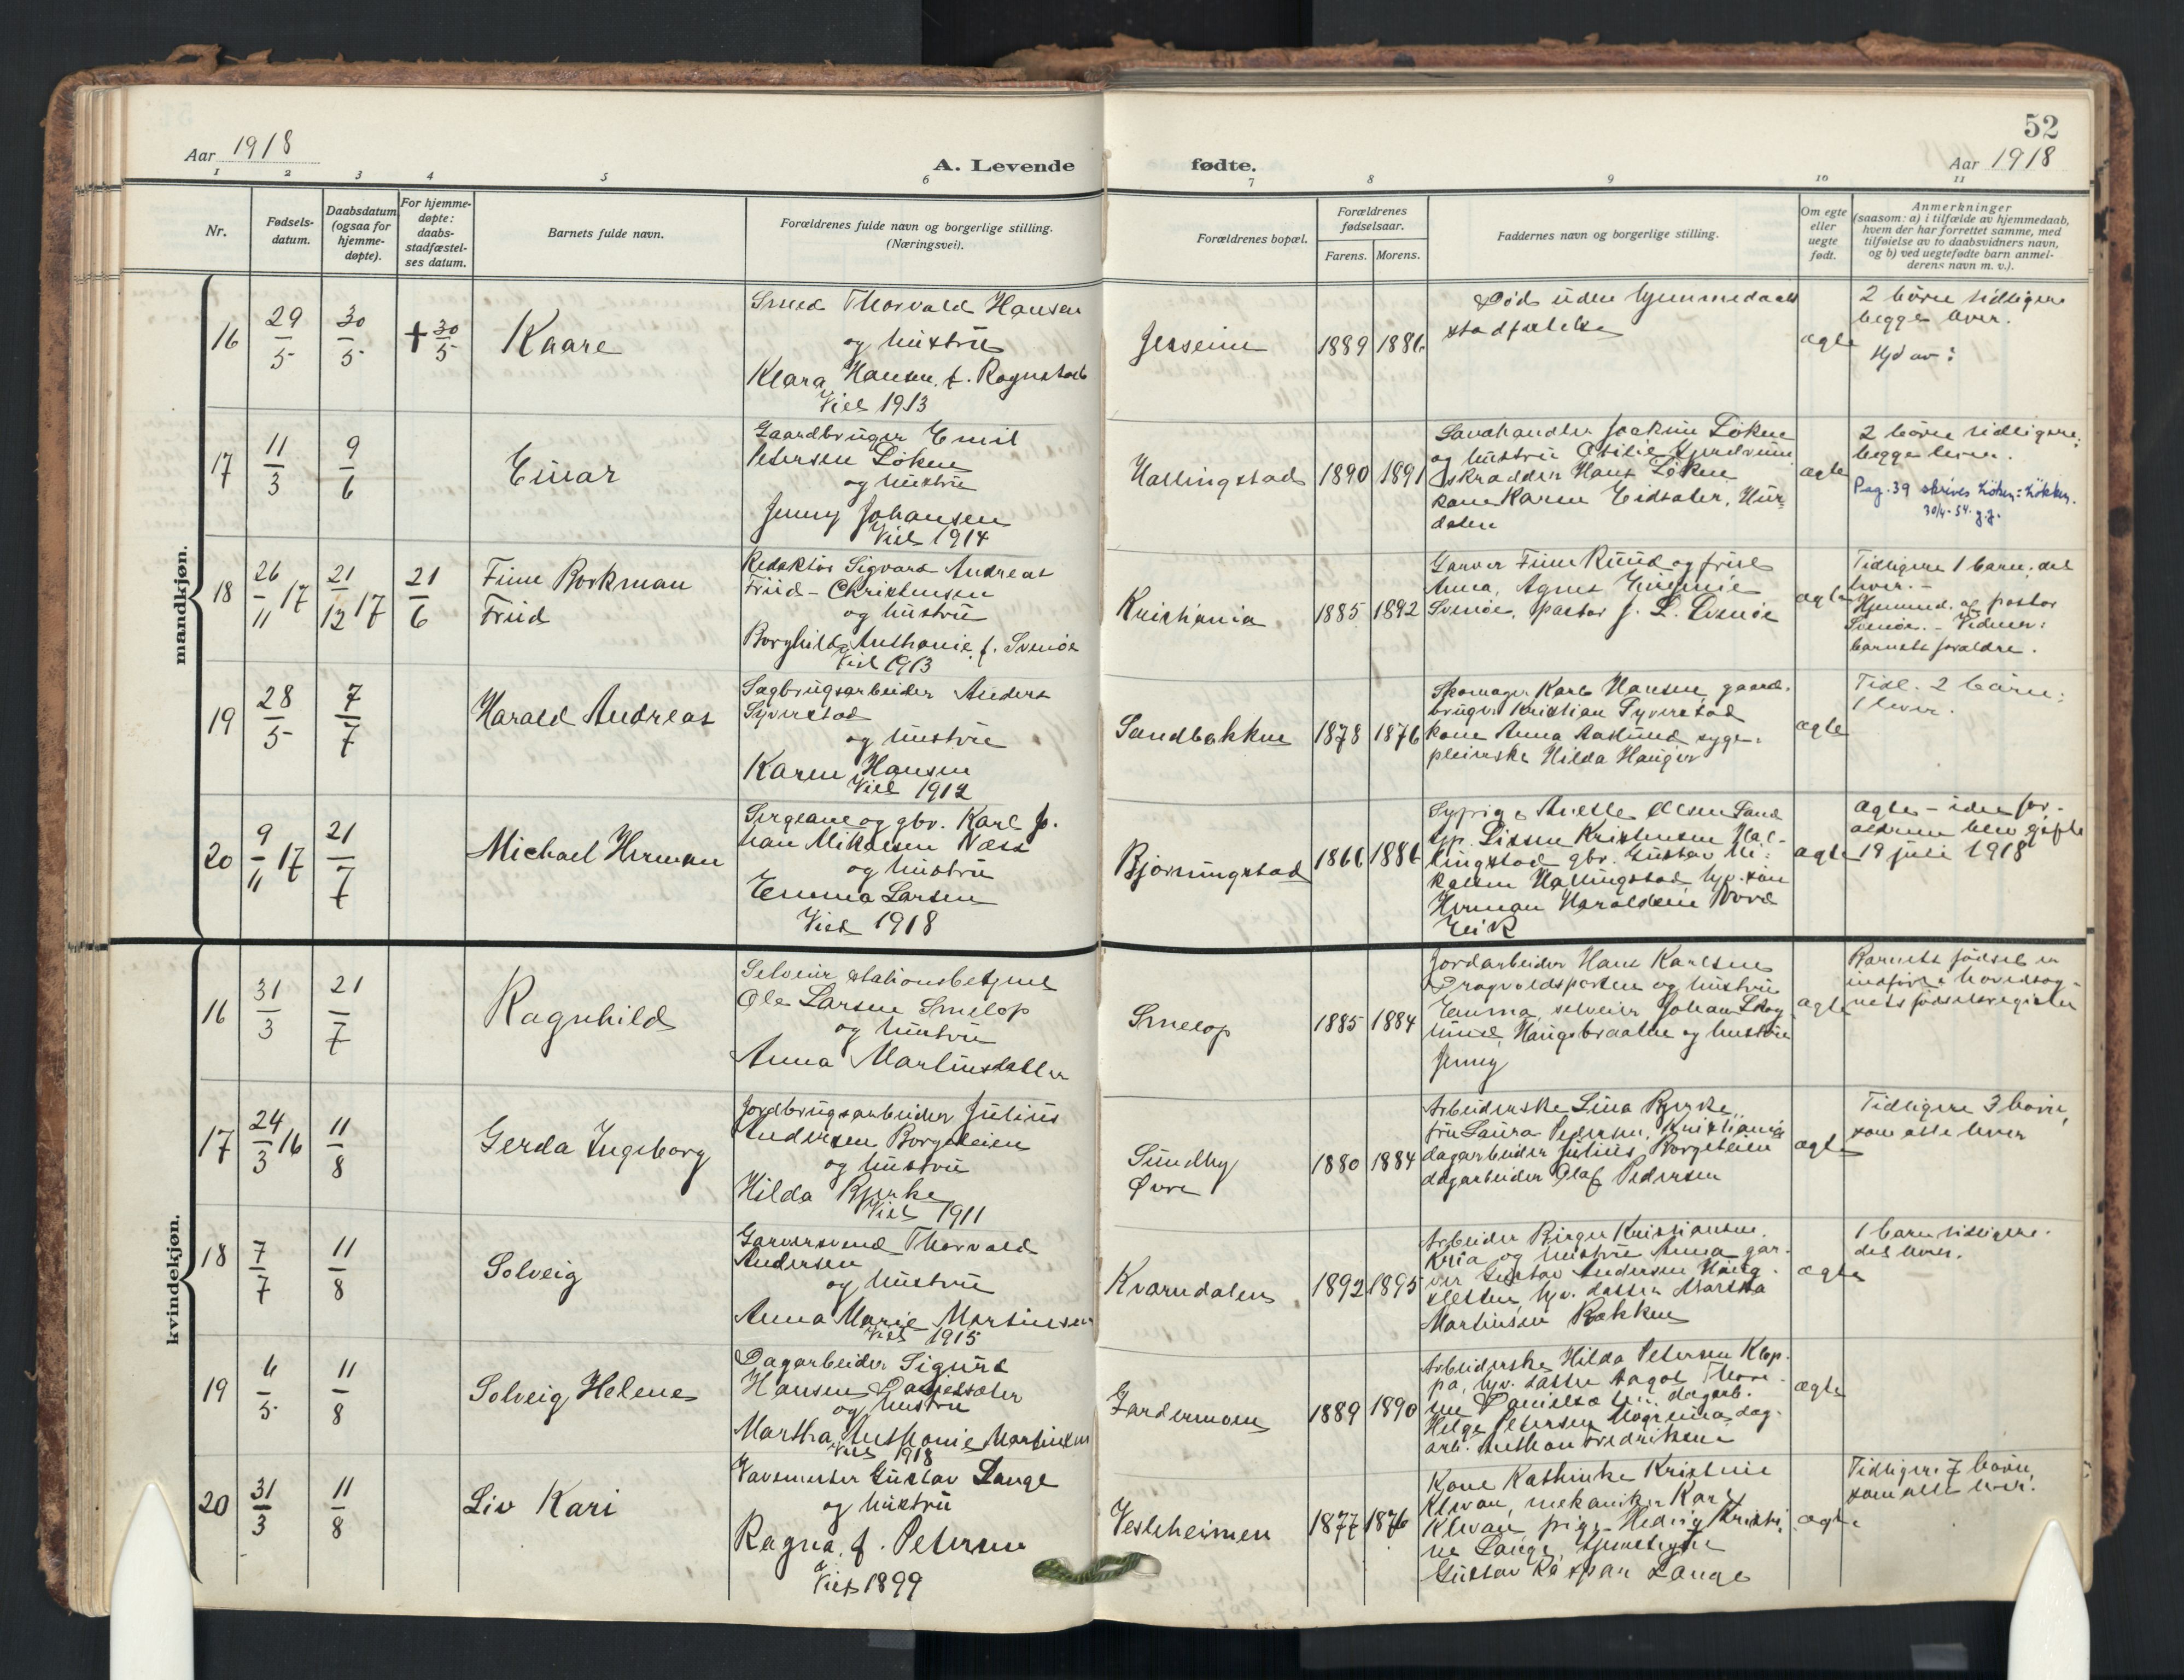 52
Aar 1918
A. Levende
fødte.
Aar 1918
1 2 3 4 5 6 7 8 9 10 11
Nr.
Fødsels-
datum.
Daabsdatum
(ogsaa for
hjemme-
døpte).
For hjemme-
døpte:
daabs-
stadfæstel-
ses datum.
Barnets fulde navn.
Forældrenes fulde navn og borgerlige stilling.
(Næringsvei).
Forældrenes bopæl.
Forældrenes
fødselsaar.
Farens. Morens.
Faddernes navn og borgerlige stilling.
Om egte
eller
uegte
født.
Anmerkninger
(saasom: a) i tilfælde av hjemmedaab,
hvem der har forrettet samme, med
tilføielse av to daabsvidners navn,
og b) ved uegtefødte barn anmel-
derens navn m. v.).
mandkjøn.
16
29/5
30/5
+ 30/5
Kaare
Smed Thorvald Hansen
og hustru
Klara Hansen, f. Rognstad
Viet 1913
Jesseim
1889
1886
Død uden hjemmedaabs
stadfæstelse
ægte
2 børn tidligere
begge lever.
Hjd av:
17
11/3
9/6
Einar
Gaardbruger Emil
Petersen Løken
og hustru
Jenny Johansen
Viet 1914
Hallingstad
1890
1891
og hustru Otilie
skrædder Hans Løken
kone Karen Eidsater, Hur-
dalen
ægte
2 børn tidligere,
begge lever.
Pag. 39 skrives Løken: Løkken.
30/4-54. g.g.
18
26/11 17
21/12 17
21/6
Finn Borkman
Friid
Redaktør Sigvard Andreas
Friid-Christensen
og hustru
Borghild Anthonie f. Svenøe
Viet 1913
Kristiania
1885
1892
Garver Finn Ruud og frue
Anna, Agnes
Svenøe, pastor J. L. Svenøe
ægte
Tidligere 1 barn, det
lever.-
Hjemmed. af pastor
Svenøe. - Vidner:
barnets forældre.
19
28/5
7/7
Harald Andreas
Sagbrugsarbeider Anders
Syverstad
og hustru
Karen Hansen
Viet 1912
Sandbakken
1878
1876
Skomager Karl Hansen, gaard-
bruger Kristian Syverstad
kone Anna Aaslund syge-
pleierske Hilda Hauger
ægte
Tidl. 2 børn,
1 lever.
20
9/11 17
21/7
Michael Herman
Sergeant og gbr. Karl Jo-
han Mikalsen Næss
og hustru
Emma Larsen
Viet 1918
Bjørningstad
1866
1886
Sypige Anette Olsen Sand
syp. Lissen Kristensen Hal-
lingstad gbr. Gustav Mi-
kalsen Hallingstad hjv. søn
Herman Haraldsen Nord
Eik
ægte
ægte - idet for-
ældrene blev gifte
19 juli 1918
kvindekjøn.
16
31/3
21/7
Ragnhild
Selveier stationsbetjent
Ole Larsen Smelop
og hustru
Anna Martinsdatter
Smelop
1885
1884
Jordarbeider Hans Karlsen
Dragvoldsporten og hustru
Emma, selveier Johan Skog
lund Haugsbraaten og hustru
Jenny
ægte
Barnets fødsel er
indført i hovedsog-
nets fødselsregister
17
24/3 16
11/8
Gerda Ingeborg
Jordbrugsarbeider Julius
Andersen Borgeteien
og hustru
Hilda Bjerke
Viet 1911
Sundby
Øvre
1880
1884
Arbeiderske Lina Bjerke,
fru Laura Pedersen, Kristiania
dagarbeider Julius Borgeteien
dagarbeider Olaf Pedersen
ægte
Tidligere 3 børn,
som alle lever
18
7/7
11/8
Solveig
Garversvend Thorvald
Andersen
og hustru
Anna Marie Martinsen
Viet 1915
Kvarndalen
1892
1895
Arbeider Birger Kristiansen
Kria og hustru Anna gar-
ver Gustav Andersen Haug-
sletten, hjv. datter Martha
Martinsen Bakken
ægte
1 barn tidligere.
det lever.
19
6/5
11/8
Solveig Helene
Dagarbeider Sigurd
Hansen Danielsæter
og hustru
Martha Anthonie Martinsen
Viet 1918
Gardermoen
1889
1890
Arbeiderske Hilda Petersen Klop-
pa, hjv. datter Aagot Thore-
ne Danielsæter, dagarb.
Helge Petersen Mogreina, dag-
arb. Anthon Fredriksen
ægte
20
31/3
11/8
Liv Kari
Vavemester Gustav Lange
og hustru
Ragna f. Petersen
Viet 1899
Vesleheimen
1877
1876
Kone Kathinka Kristine
Klevan, mekaniker Karl
Klevan, pige Hedvig Kristi-
ne Lange,
Gustav Kaspar Lange
ægte
Tidligere 7 børn,
som alle lever.